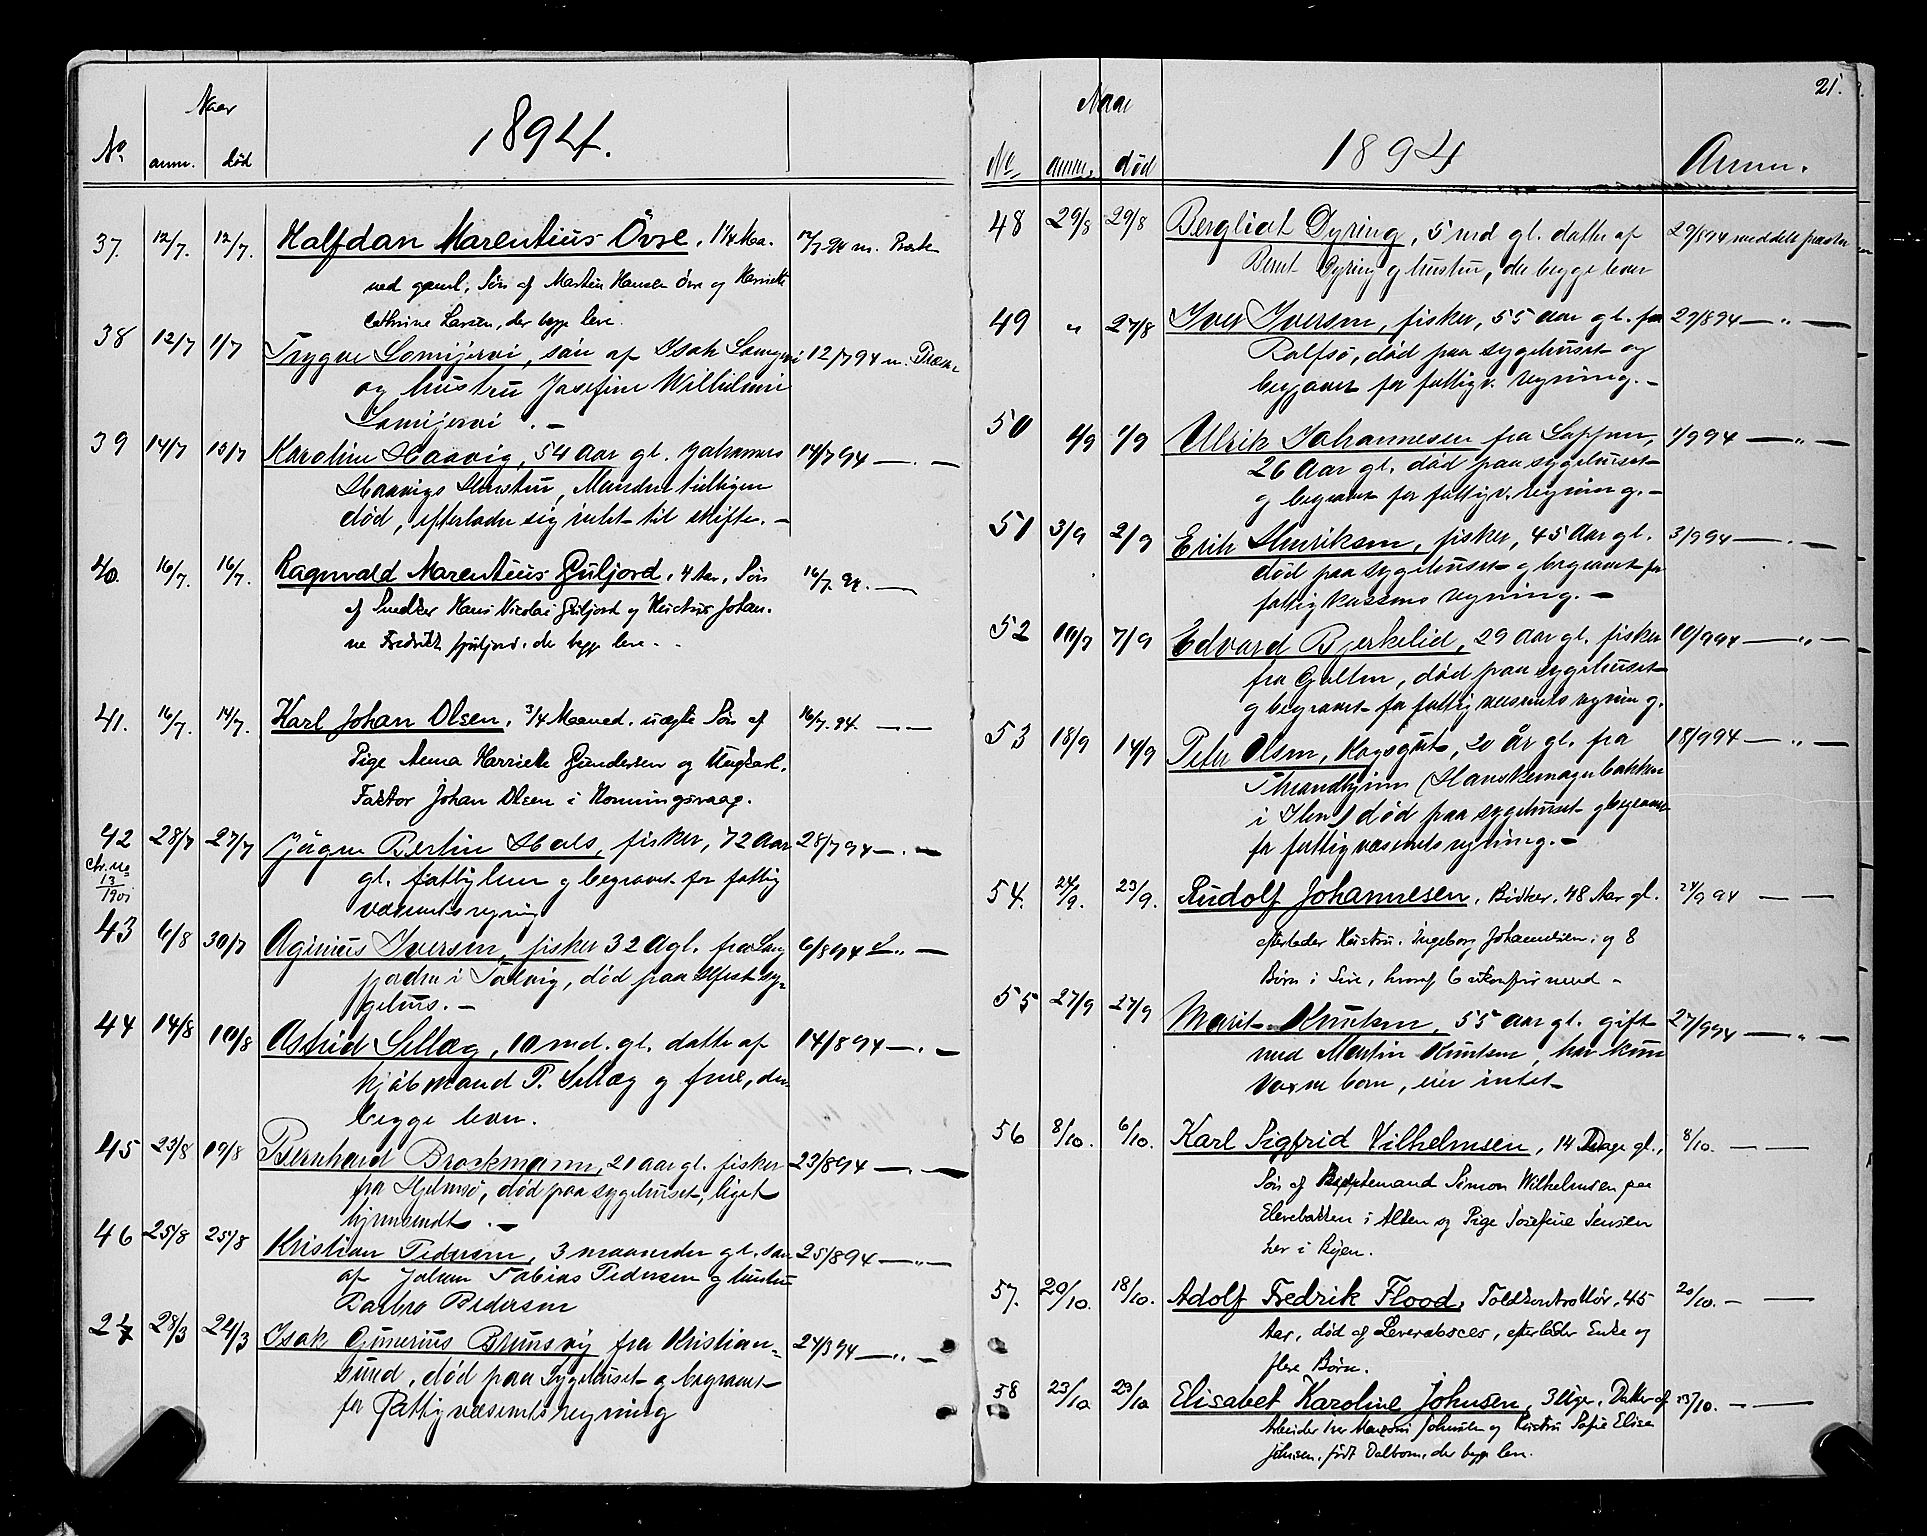 Naar
1894.
No. anm. død
37. 12/7. 12/7. Halfdan Marentius Övre, 1 1/4 Maa. 12/7 94 m. Præsten
ned gaml, Søn af Martin Hansen Övre og Henriette
Cathrine Larsen, der begge leve.
38 12/7 1/7 Trygve Lomijervi, søn af Isak Lomijervi 12/7 94 m. Præsten
og hustru Josefine Wilhelmine
Lomijervi . -
39 14/7 13/7 Karoline Haavig, 54 Aar gl. Johannes 14/7 94 — . —
Haavigs Hustru, Manden tidligere
død, efterlader sig intet til skifte. -
40. 16/7. 16/7. Ragnvald Marentius Guljord, 4 Aar, Søn 16/7. 94. —
af Snedker Hans Nicolai Guljord og Hustru Johan.
ne Fredrikke Guljord, der begge leve. -
41. 16/7. 14/7. Karl Johan Olsen, 3/4 Maaned, uægte Søn af 16/7. 94. — —
Pige Anna Harriette Gundersen og Ungkarl,
Faktor Johan Olsen i Honningsvaag.
42 28/7 27/7 Jørgen Bertin Hals, fisker, 72 Aar 28/7 94 — . —
chr. no
13
1901
gl. fattiglem og begravet for fattig
væsenets regning
43 6/8 30/7 Aginus Iversen, fisker 32 A gl. fra Lang 6/8 94 — „ —
fjorden i Talvig, død paa Hfest sy-
gehus. -
44 14/8 10/8 Astrid Sellæg, 10 md. gl. datter af 14/8 94 — . —
kjøbmand P. Sellæg og frue, der
begge lever.
45 23/8 19/8 Bernhard Brockmann, 21 aar gl. fisker 23/8 94 — . —
fra Hjelmsø, død paa sygehuset, liget
hjemsendt . -
46 25/8 25/8 Kristian Pedersen, 3 maaneder gl. søn 25/8 94 — „ —
af Johan Tobias Pedersen og hustru
Barbro Pedersen
47 28/3 24/3 Isak Gunerius Brunsvig fra Kristian- 24/3 94 — „ —
sund, død paa Sygehuset og begravet
for Fattigvæsenets regning
21.
Naar
1894
No anm. død Anm.
48 29/8 29/8 Bergliot Dyring, 5 md gl. datter af 29/8 94 meddelt præsten
Bernt Dyring og hustru, der begge lever
49 „ 27/8 Iver Iversen, fisker, 55 aar gl. fra 29/8 94 — „ —
Rolfsø, død paa sygehuset og
begravet for fattigv. regning. -
50 1/9 1/9 Ulrik Johannesen fra Lappen, 1/9 94 — „ —
26 Aar gl. død paa sygehuset
og begravet for fattigv. regning. -
51 3/9 2/9 Erik Henriksen, fisker, 45 Aar gl. 3/9 94 — . —
død paa sygehuset og begravet for
fattigkassens regning. -
52 10/9 7/9 Edvard Bjerkelid, 29 Aar gl. fisker 10/9 94 — „ —
fra Galten, død paa sygehuset
og begravet for fattigvæsenets regning.
53 18/9 14/9 Peter Olsen, Kogsgut, 20 år gl. fra 18/9 94 — „ —
Throndhjem (Hanskemagerbakken
i Ilen) død paa sygehuset og begravet
for fattigvæsenets regning. -
54. 24/9. 23/9. Rudolf Johannesen, Bødker, 48 Aar gl. 24/9 94 — —
efterlader Hustru, Ingeborg Johannesen, og 8
Børn i Live, hvoraf 6 ukonfirmerede -
55 27/9 27/9 Marit Knutsen, 55 aar gl. gift 27/9 94 — „ —
med Martin Knutsen, har kun
voxne børn, eier intet
56 8/10. 6/10. Karl Sigfrid Vilhelmsen, 14 Dage gl., 8/10. — —
Søn af Simon Wilhelmsen paa
Elvebakken i Alten og Pige Josefine Jensen
her i Byen.
57. 20/10. 18/10. Adolf Fredrik Flood, Toldkontrollør, 45 20/10. — —
Aar, død af Leverabsces, efterlader Enke og
flere Børn.
58 23/10 23/10 Elisabet Karoline Johnsen, 3 Uger, Datter af 23/10. — —
Arbeider Iver Johnsen og Hustru Sofie Elise
Johnsen, født Dalbom, der begge leve.